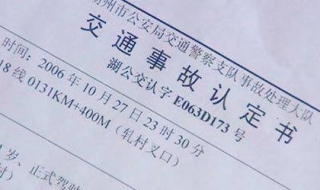 州市公安局交通警察支队事故处理大队
交通事故认定书
湖公交认字 E063D173 号
时间：2006 年 10 月 27 日 23 时 30 分
18 线 0131KM+400M（轧村叉口）
岁、正式驾驶